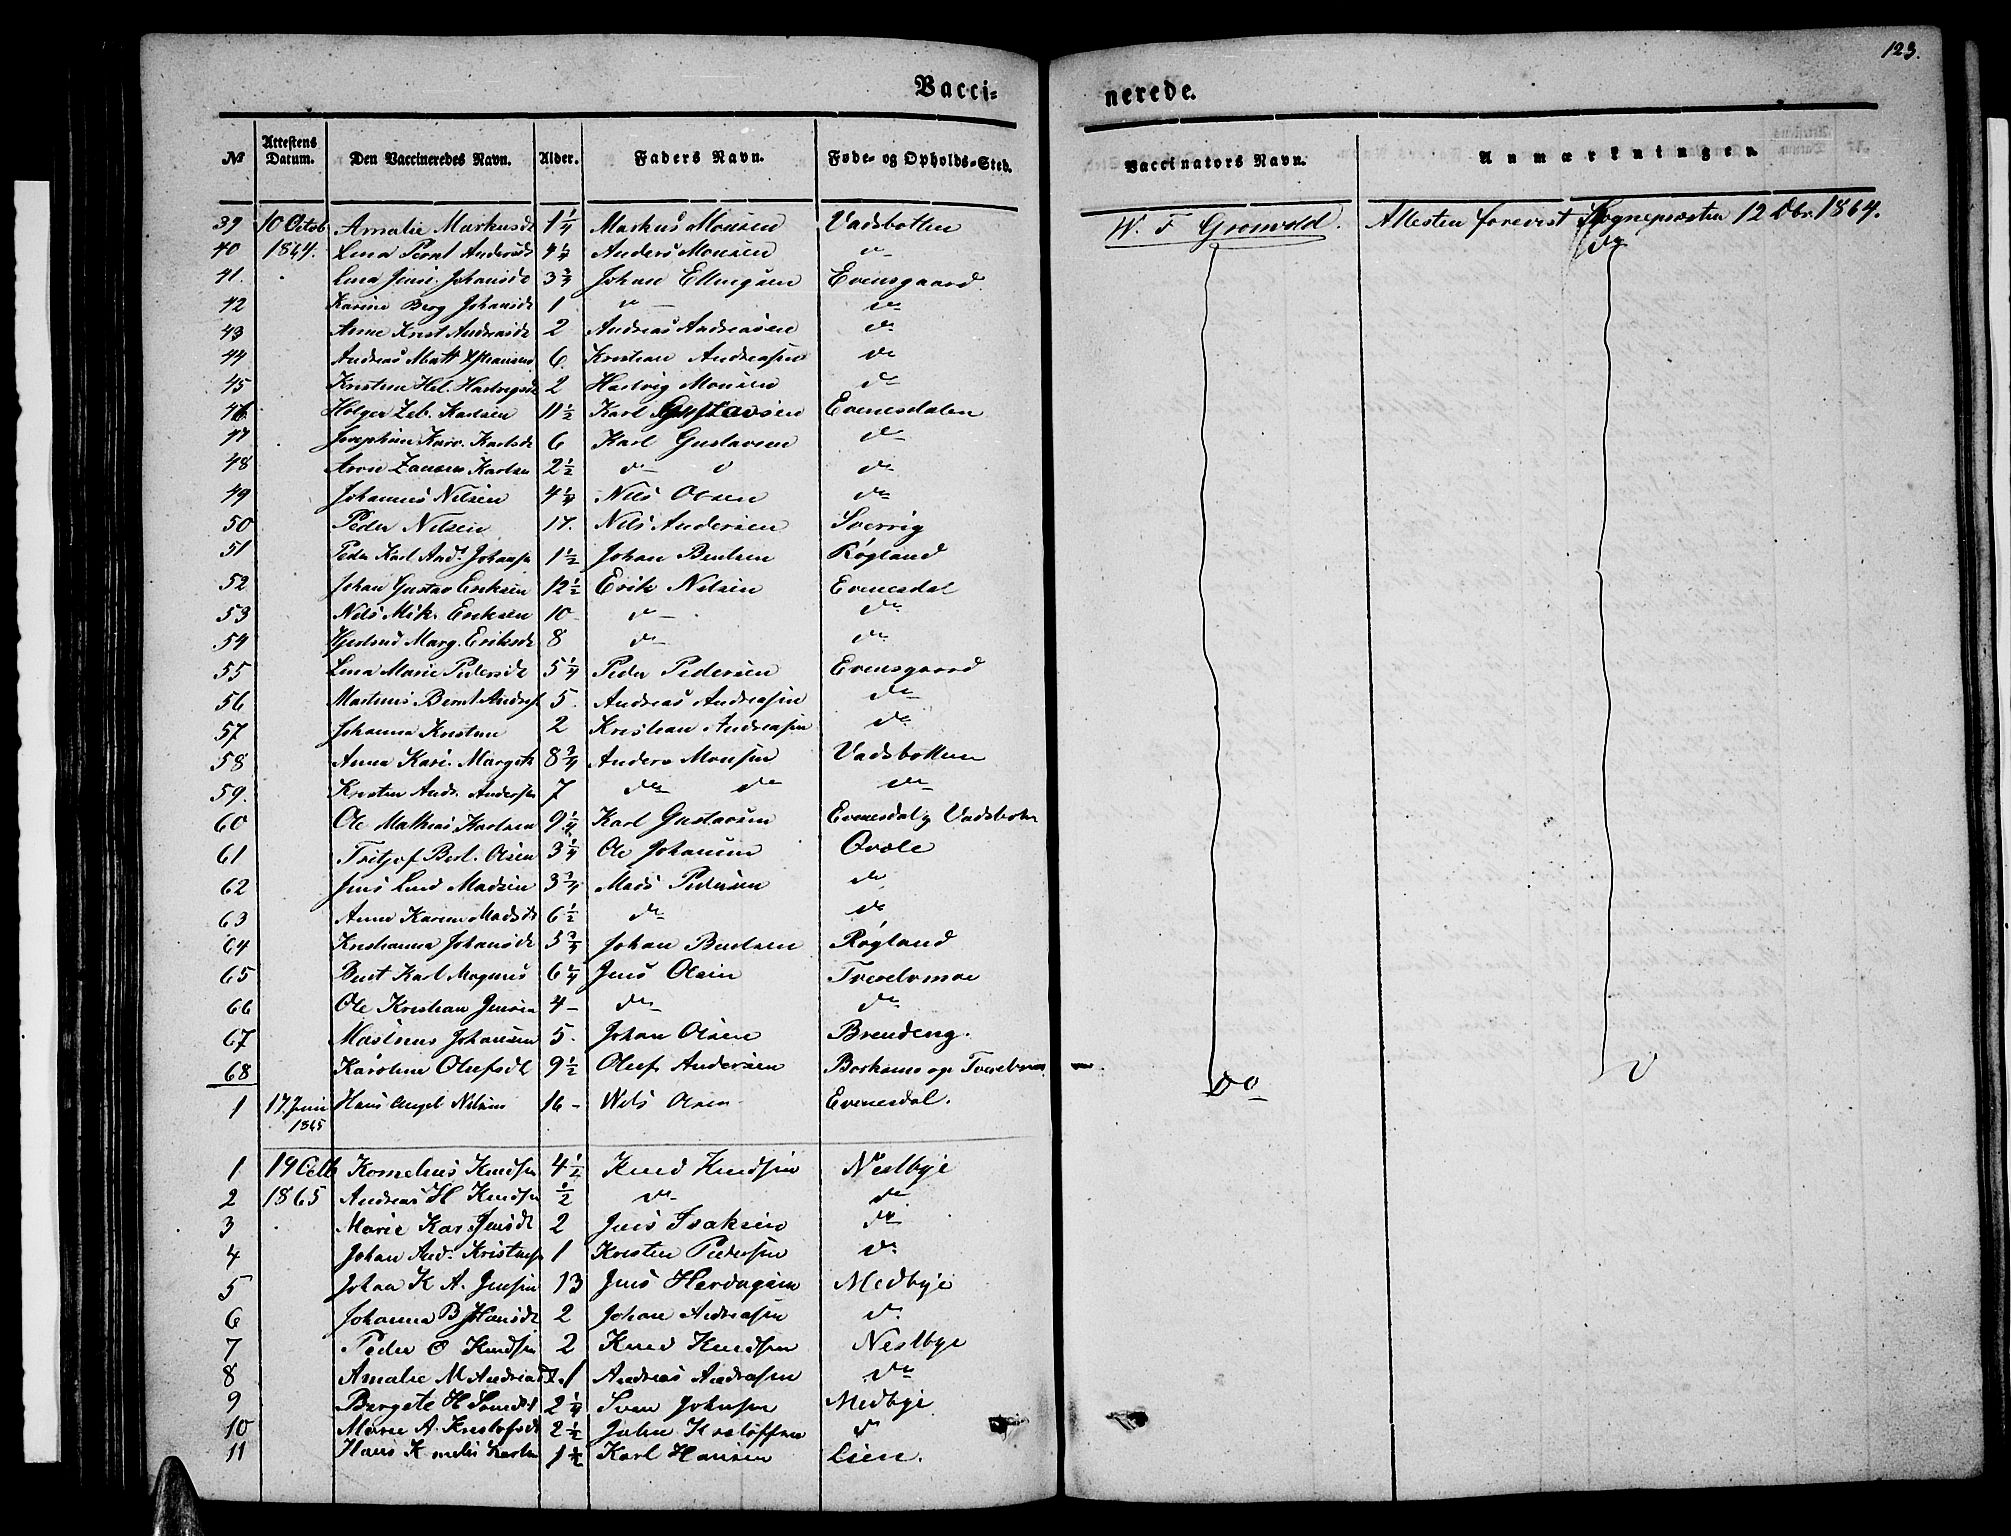 123.
Vacci- nerede.
No Attestens Datum. Den Vaccineredes Navn. Alder. Faders Navn. Føde- og Opholds-Sted. Vaccinators Navn. Anmærkninger.
39 10 Octob Amalie Markusdt 1 1/4 Markus Monsen Vadsbotten W. F Gronvold. Attesten forevist Sognepræsten 12 Dbr. 1864.
40 1864. Lina Bernt Andersdt 4 1/4 Anders Monsen do do
41. Lina Jensi. Johansdt 3 3/4 Johan Ellingsen Evensgaard
42 Karine Berg Johansdt 1 do do
43 Anne Krist Andreasdt 2 Andreas Andreasen do
44 Andreas Matt 6. Kristian Andreasen do
45 Kristine Hel. Hartvigsdt 2 Hartvig Monsen do
46 Holger Zeb. Karlsen 11 1/2 Karl Gustavsen Evenesdalen
47 Josephine Karo. Karlsdt 6 Karl Gustavsen do
48 Arve Karlsen 2 1/2 do do do
49 Johannes Nilsen 4 1/4 Nils Olsen do
50 Peder Nilsen 17. Nils Andersen Sverrig
51 Peder Karl And. Johansen 1 1/2 Johan Bentsen Røgland
52 Johan Gustav Eriksen 12 1/2 Erik Nilsen Evenesdal
53 Nils Mik. Eriksen 10 do do
54 Marg. Eriksdt 8 do do
55 Lina Marie Pedersdt 5 1/4 Peder Pedersen Evensgaard
56 Martinus Bernt Andreas 5. Andreas Andreasen do
57 Johanna Kristine 2 Kristian Andreasen do
58 Anna Kari. Margrete 8 3/4 Anders Monsen Vadsbotten
59. Kristen Andr. Andersen 7 do do do
60 Ole Mathias Karlsen 9 1/4 Karl Gustavsen Evenesdal og Vadsbotn
61 Fritjof Berl. Olsen 3 1/4 Ole Johansen Qvale
62 Jens Lund Madsen 3 3/4 Mads Pedersen do
63 Anne Karine Madsdt 6 1/2 do do
64 Kristianna Johansdt 3 3/4 Johan Bentsen Røgland
65 Bent Karl Magnus 6 1/4 Jens Olsen Tverelvmoe
66 Ole Kristian Jensen 4 – do do
67 Martinus Johansen 5. Johan Olsen Brendeng.
68 Karoline Olufsdt 9 1/2 Oluf Andersen og Tverelvmoe
1 17. Juni 1865 Hans Angel Nilsen 16 – Nils Olsen Evenesdal. do
1 19 Octb Kornelius Knudsen 4 1/2 Knud Knudsen Nestbye
2 1865 Andreas H Knudsen 1/2 do do
3 Marie Kar. Jensdt 2 Jens Isaksen do
4 Johan And. Kristensen 1 Kristen Pedersen do
5 Johan K A. Jensen 13 Jens Hardagsen Medbye
6 Johanna B Johansdt 2 Johan Andreasen do
7 Peder O Knudsen 2 Knud Knudsen Nestbye
8 Amalie M Andreasdt 1 Andreas Andreasen do
9 Burgete H Svendsdt 2 1/4 Sven Johnsen Medbye
10 Marie A. Kristofsdt 2 1/2 John Kristoffersen do
11 Hans Kornelius Karlsen 1 1/2 Karl Hansen Lien.